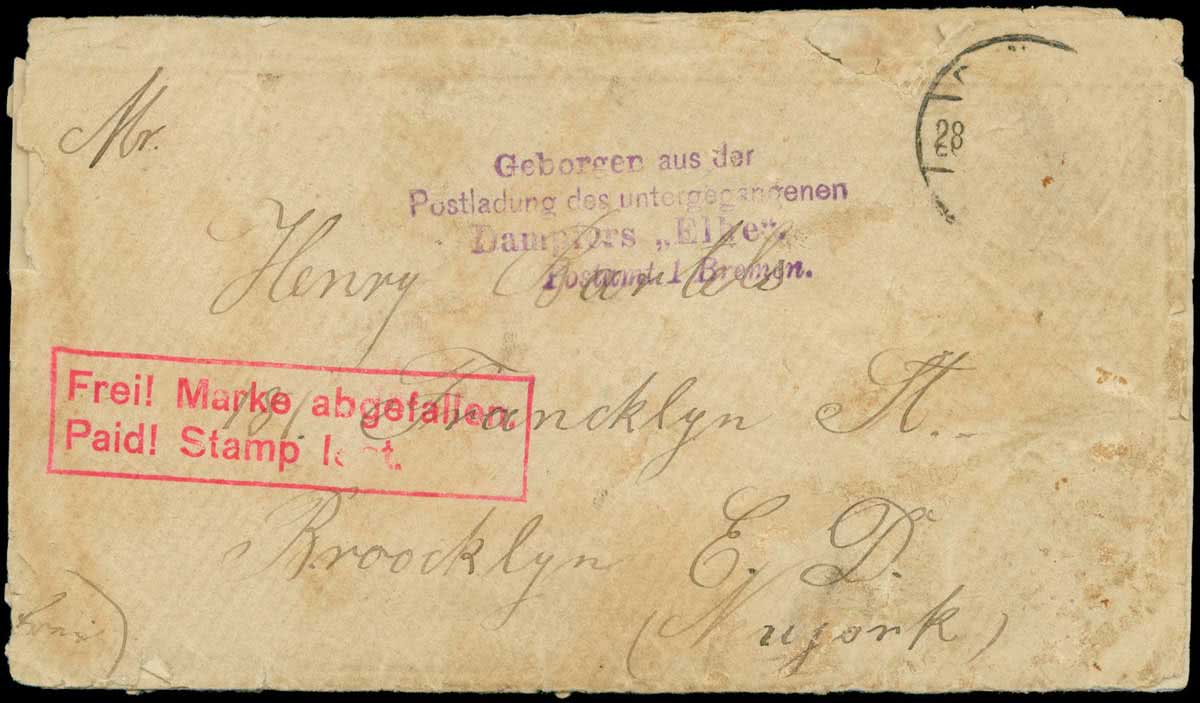 Mr.
28
Geborgen aus der
Postladung des untergegangenen
Dampfers „Elbe“.
Postamt 1 Bremen.
Henry
Frei! Marke abgefallen.
Paid! Stamp lost.
Francklyn St.
Broocklyn E. D.
(Nujork)